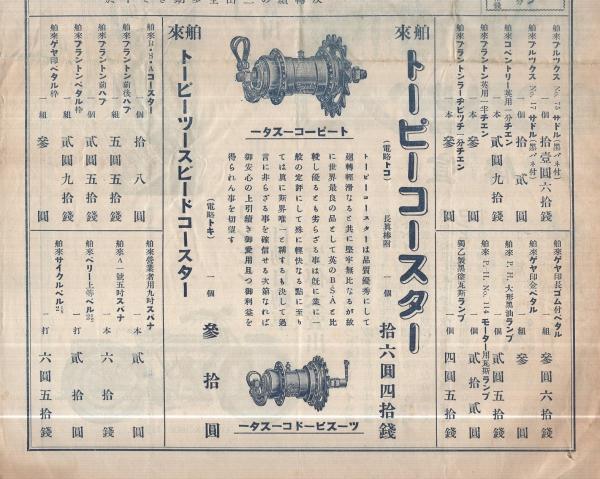 舶來ブルックス No. 75 サドル(黒バネ付)
一個 拾壹圓六拾錢
舶來ブルックス No. 17 サドル(黒バネ付)
一個 拾貳圓
舶來コベントリー英用一分チエン
一本 貳圓九拾錢
舶來ブラントン英用一半チエン
一本 參圓
舶來ブラントンラーヂピツチ二分チエン
一本 參圓
舶來ゲヤ印長ゴム付ペタル
一組 參圓六拾錢
舶來ゲヤ印金ペタル
一組 參圓
舶來 P. H. 大形黒油ランプ
一個 貳圓五拾錢
舶來 P. H. No. 114 モーター用瓦斯ランプ
一個 貳拾貳圓
獨乙製黒塗瓦斯ランプ
一個 四圓五拾錢
舶來 トーピーコースター
(電略トコ) 長眞棒附 一個 拾六圓四拾錢
タースーコーピート
トーピーコースターは品質優秀にして
廻轉輕滑なると共に堅牢無比なるが故
に世界最良の品として英のBSAと比
較し優るとも劣らざる事は既に業に一
般の定評にして殊に輕快なる點に至り
ては眞に斯界唯一と稱するも決して過
言に非らざる事を確信せる次第なれば
御安心の上引續き御愛用且つ御利益を
得られん事を切望す
タースーコドービースーツ
舶來 トーピーツースピードコースター
(電略トキ) 一個 參拾圓
舶來B.S.Aコースター
一個 拾八圓
舶來ブラントン前後ハブ
一組 五圓五拾錢
舶來ブラントン前ハブ
一個 貳圓五拾錢
舶來ブラントンペタル枠
一組 貳圓九拾錢
舶來ゲヤ印ペタル枠
一組 參圓
舶來營業者用九吋スパナ
一本 貳圓
舶來A一號五吋スパナ
一本 六拾錢
舶來ベリー上等ベル
一打 貳拾圓
舶來サイクルベル
一打 六圓五拾錢